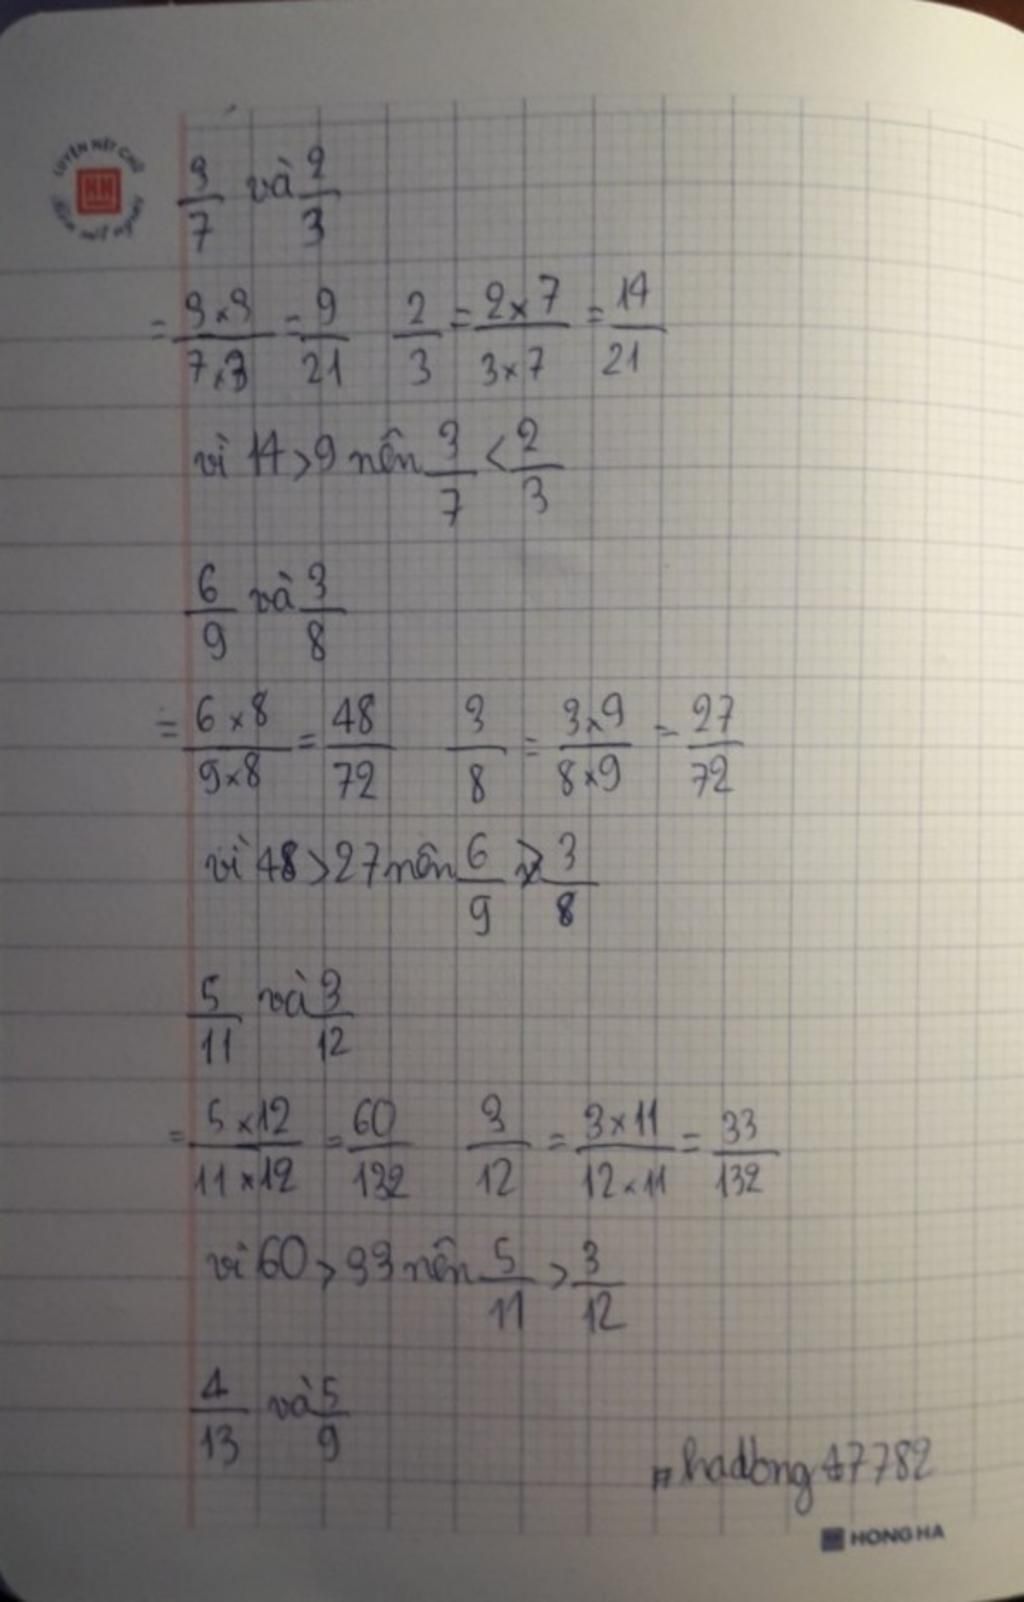 LUYỆN NÉT CHỮ
HH
3/7 và 2/3
= 3×3/7×3 = 9/21 2/3 = 2×7/3×7 = 14/21
vì 14 > 9 nên 3/7 < 2/3
6/9 và 3/8
= 6×8/9×8 = 48/72 3/8 = 3×9/8×9 = 27/72
vì 48 > 27 nên 6/9 > 3/8
5/11 và 3/12
= 5×12/11×12 = 60/132 3/12 = 3×11/12×11 = 33/132
vì 60 > 33 nên 5/11 > 3/12
4/13 và 5/9
HONG HA